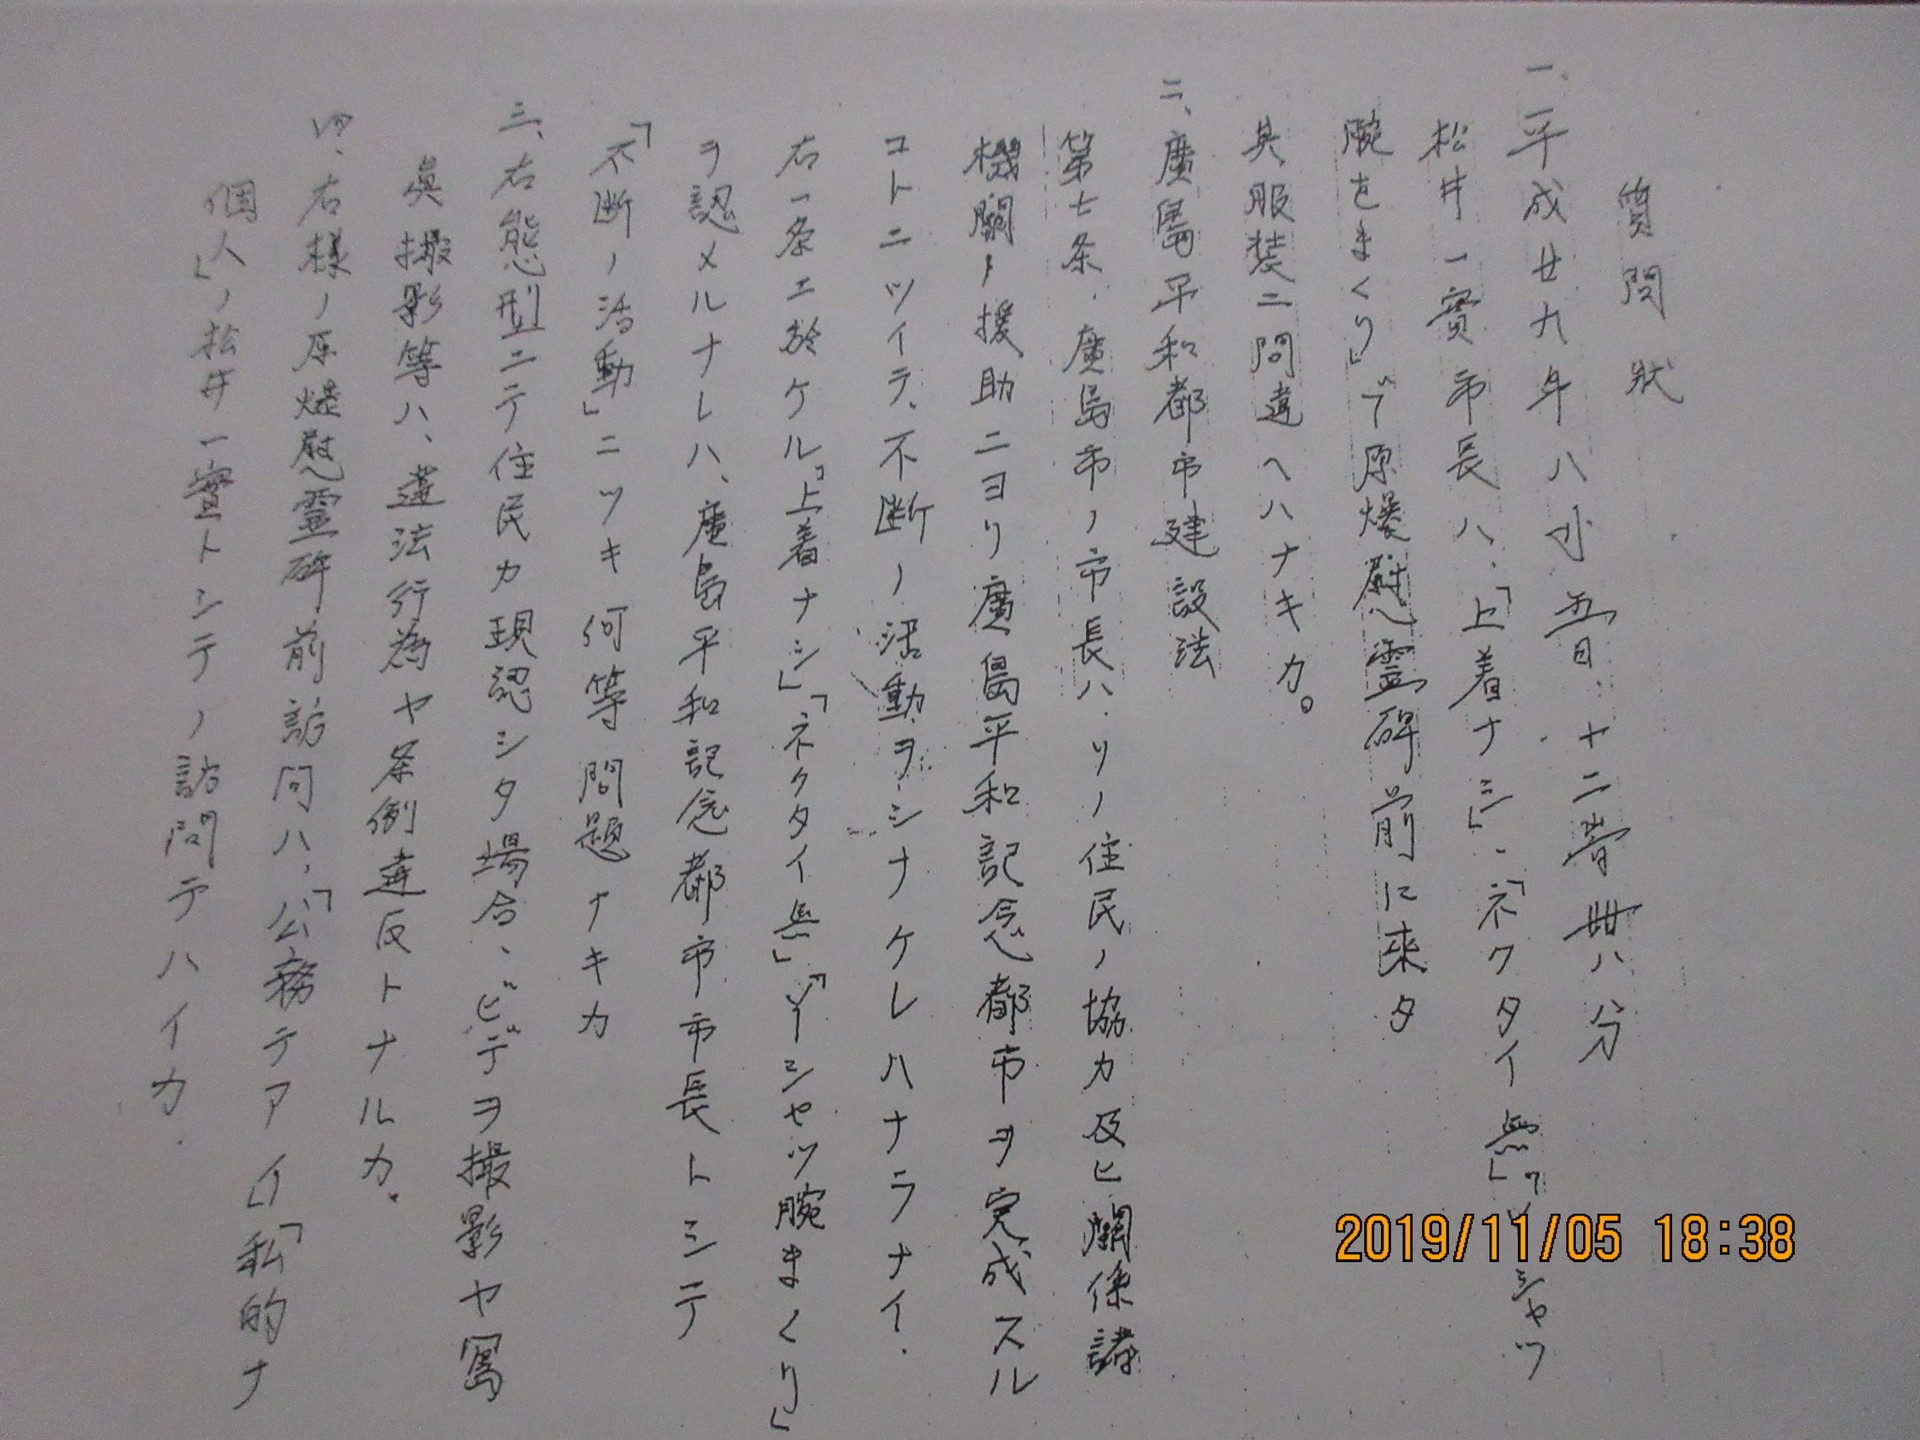 質問狀
一、平成廿九年八月五日、十二時卅八分
松井一實市長ハ、「上着ナシ」、「ネクタイ無」「ワイシャツ
腕をまくり」デ原爆慰霊碑前に来タ
其服装ニ問違ヘハナキカ。
二、廣島平和都市建設法
第七条.廣島市ノ市長ハ.ソノ住民ノ協力及ヒ關係諸
機關ノ援助ニヨリ廣島平和記念都市ヲ完成スル
コトニツイテ、不断ノ活動ヲシナケレハナラナイ.
右一条エ於ケル「上着ナシ」「ネクタイ無」「Yイシャツ腕まくり」
ヲ認メルナレハ、廣島平和記念都市市長トシテ
「不断ノ活動」ニツキ何等問題ナキカ
三、右態型ニテ住民カ現認シタ場合、ビデヲ撮影ヤ寫
眞撮影等ハ、違法行為ヤ条例違反トナルカ.
四、右様ノ原爆慰霊碑前訪問ハ、「公務テアイ」「私的ナ
個人」ノ松井一實トシテノ訪問テハイカ.
2019/11/05 18:38